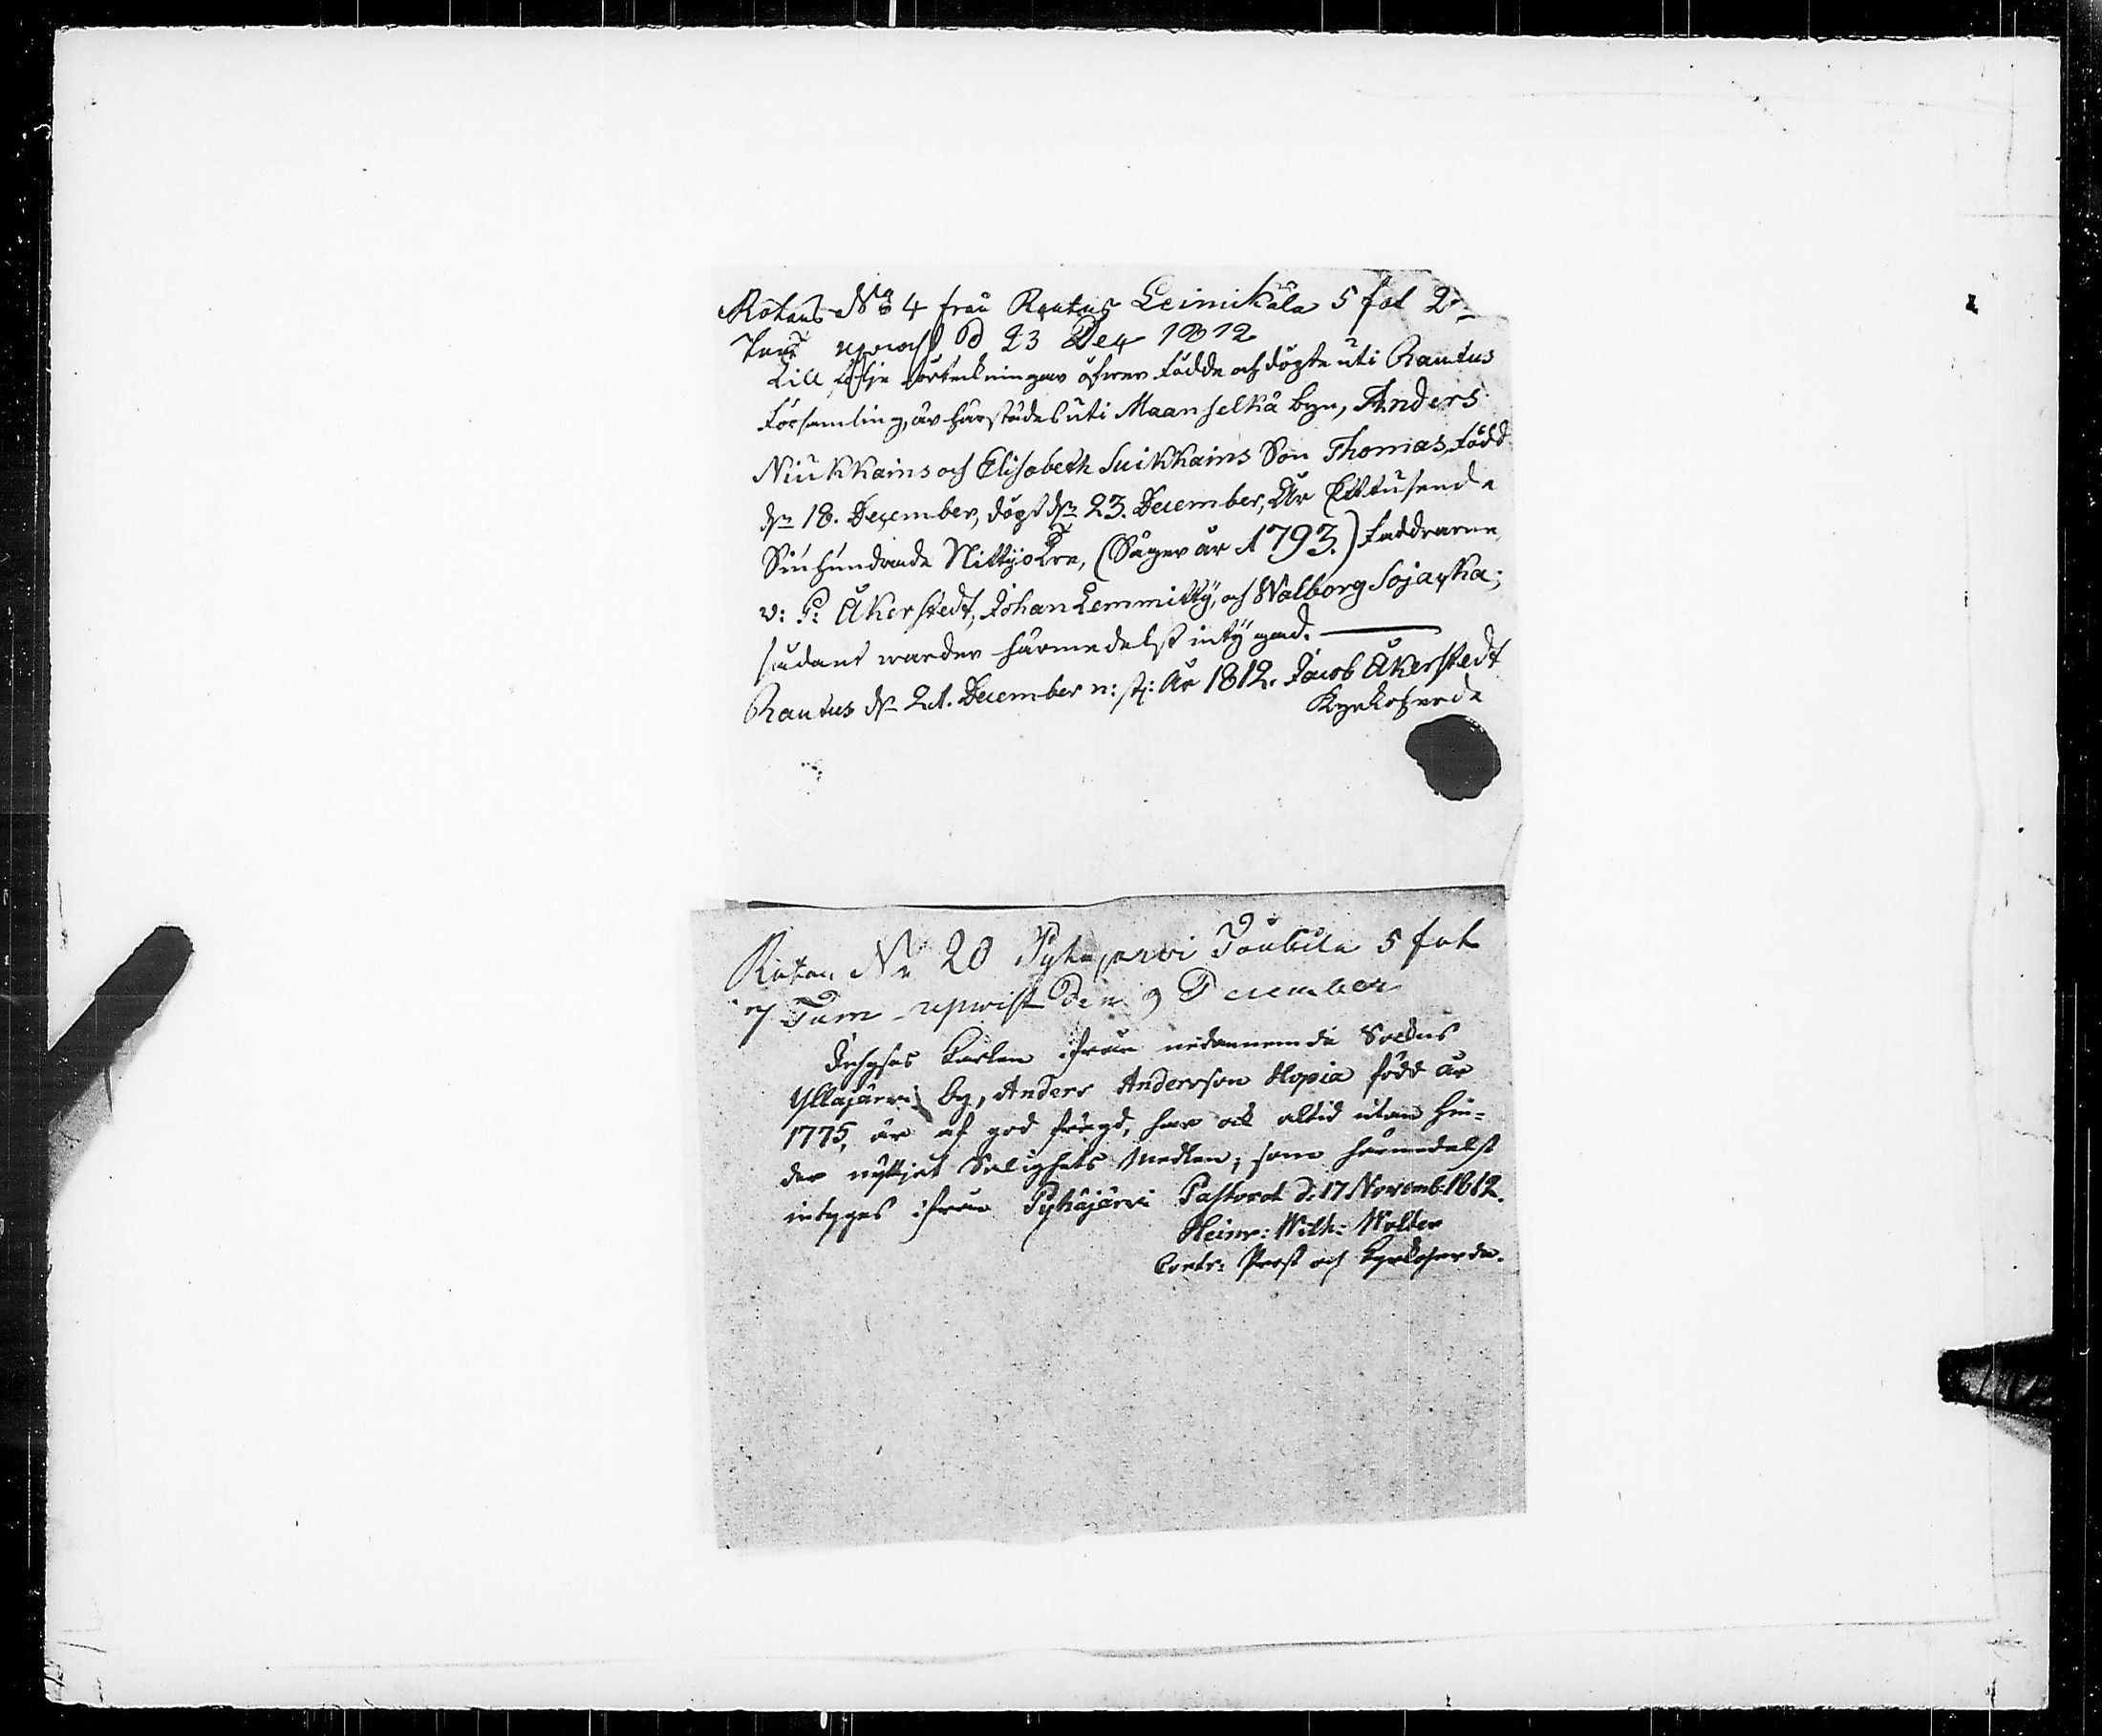 Rotans No 4 från Rautus Leinikälä 5 fot 2
Tum d 23 Dec 1812
Till följe förteckningar öfwer Födde och döpte uti Rautus
Församling, är härstädes uti Maanselkä by, Anders
Niukkains och Elisabeth Suikkains Son Thomas, född
dn 18. December, döpt dn 23. December, År Ettusende
Siuhundrade Nittyotre, (Säger år 1793.) Faddrarne
v: P: Åkerstedt, Johan Lemmitty, och Walborg Sojakka;
sådant warder härmedelst intygad.
Rautus dn 21. December n: st: År 1812. Jacob Åkerstedt
Kyrkoherde
Rotan No 20 Pyhejerwi Toubila 5 fot
7 Tum den 9 December
Karlen ifrån nedannemnde Sockns
Ylläjärvi by, Anders Andersson Hopia född år
1775, är af god frägd, har ock altid utan hin-
der nyttjat Salighets Medlen; som härmedelst
intyges ifrån Pyhäjärvi Pastorat d: 17 Novemb: 1812.
Heinr: Wilh: Molder
Contr: Prost och Kyrkoherde.